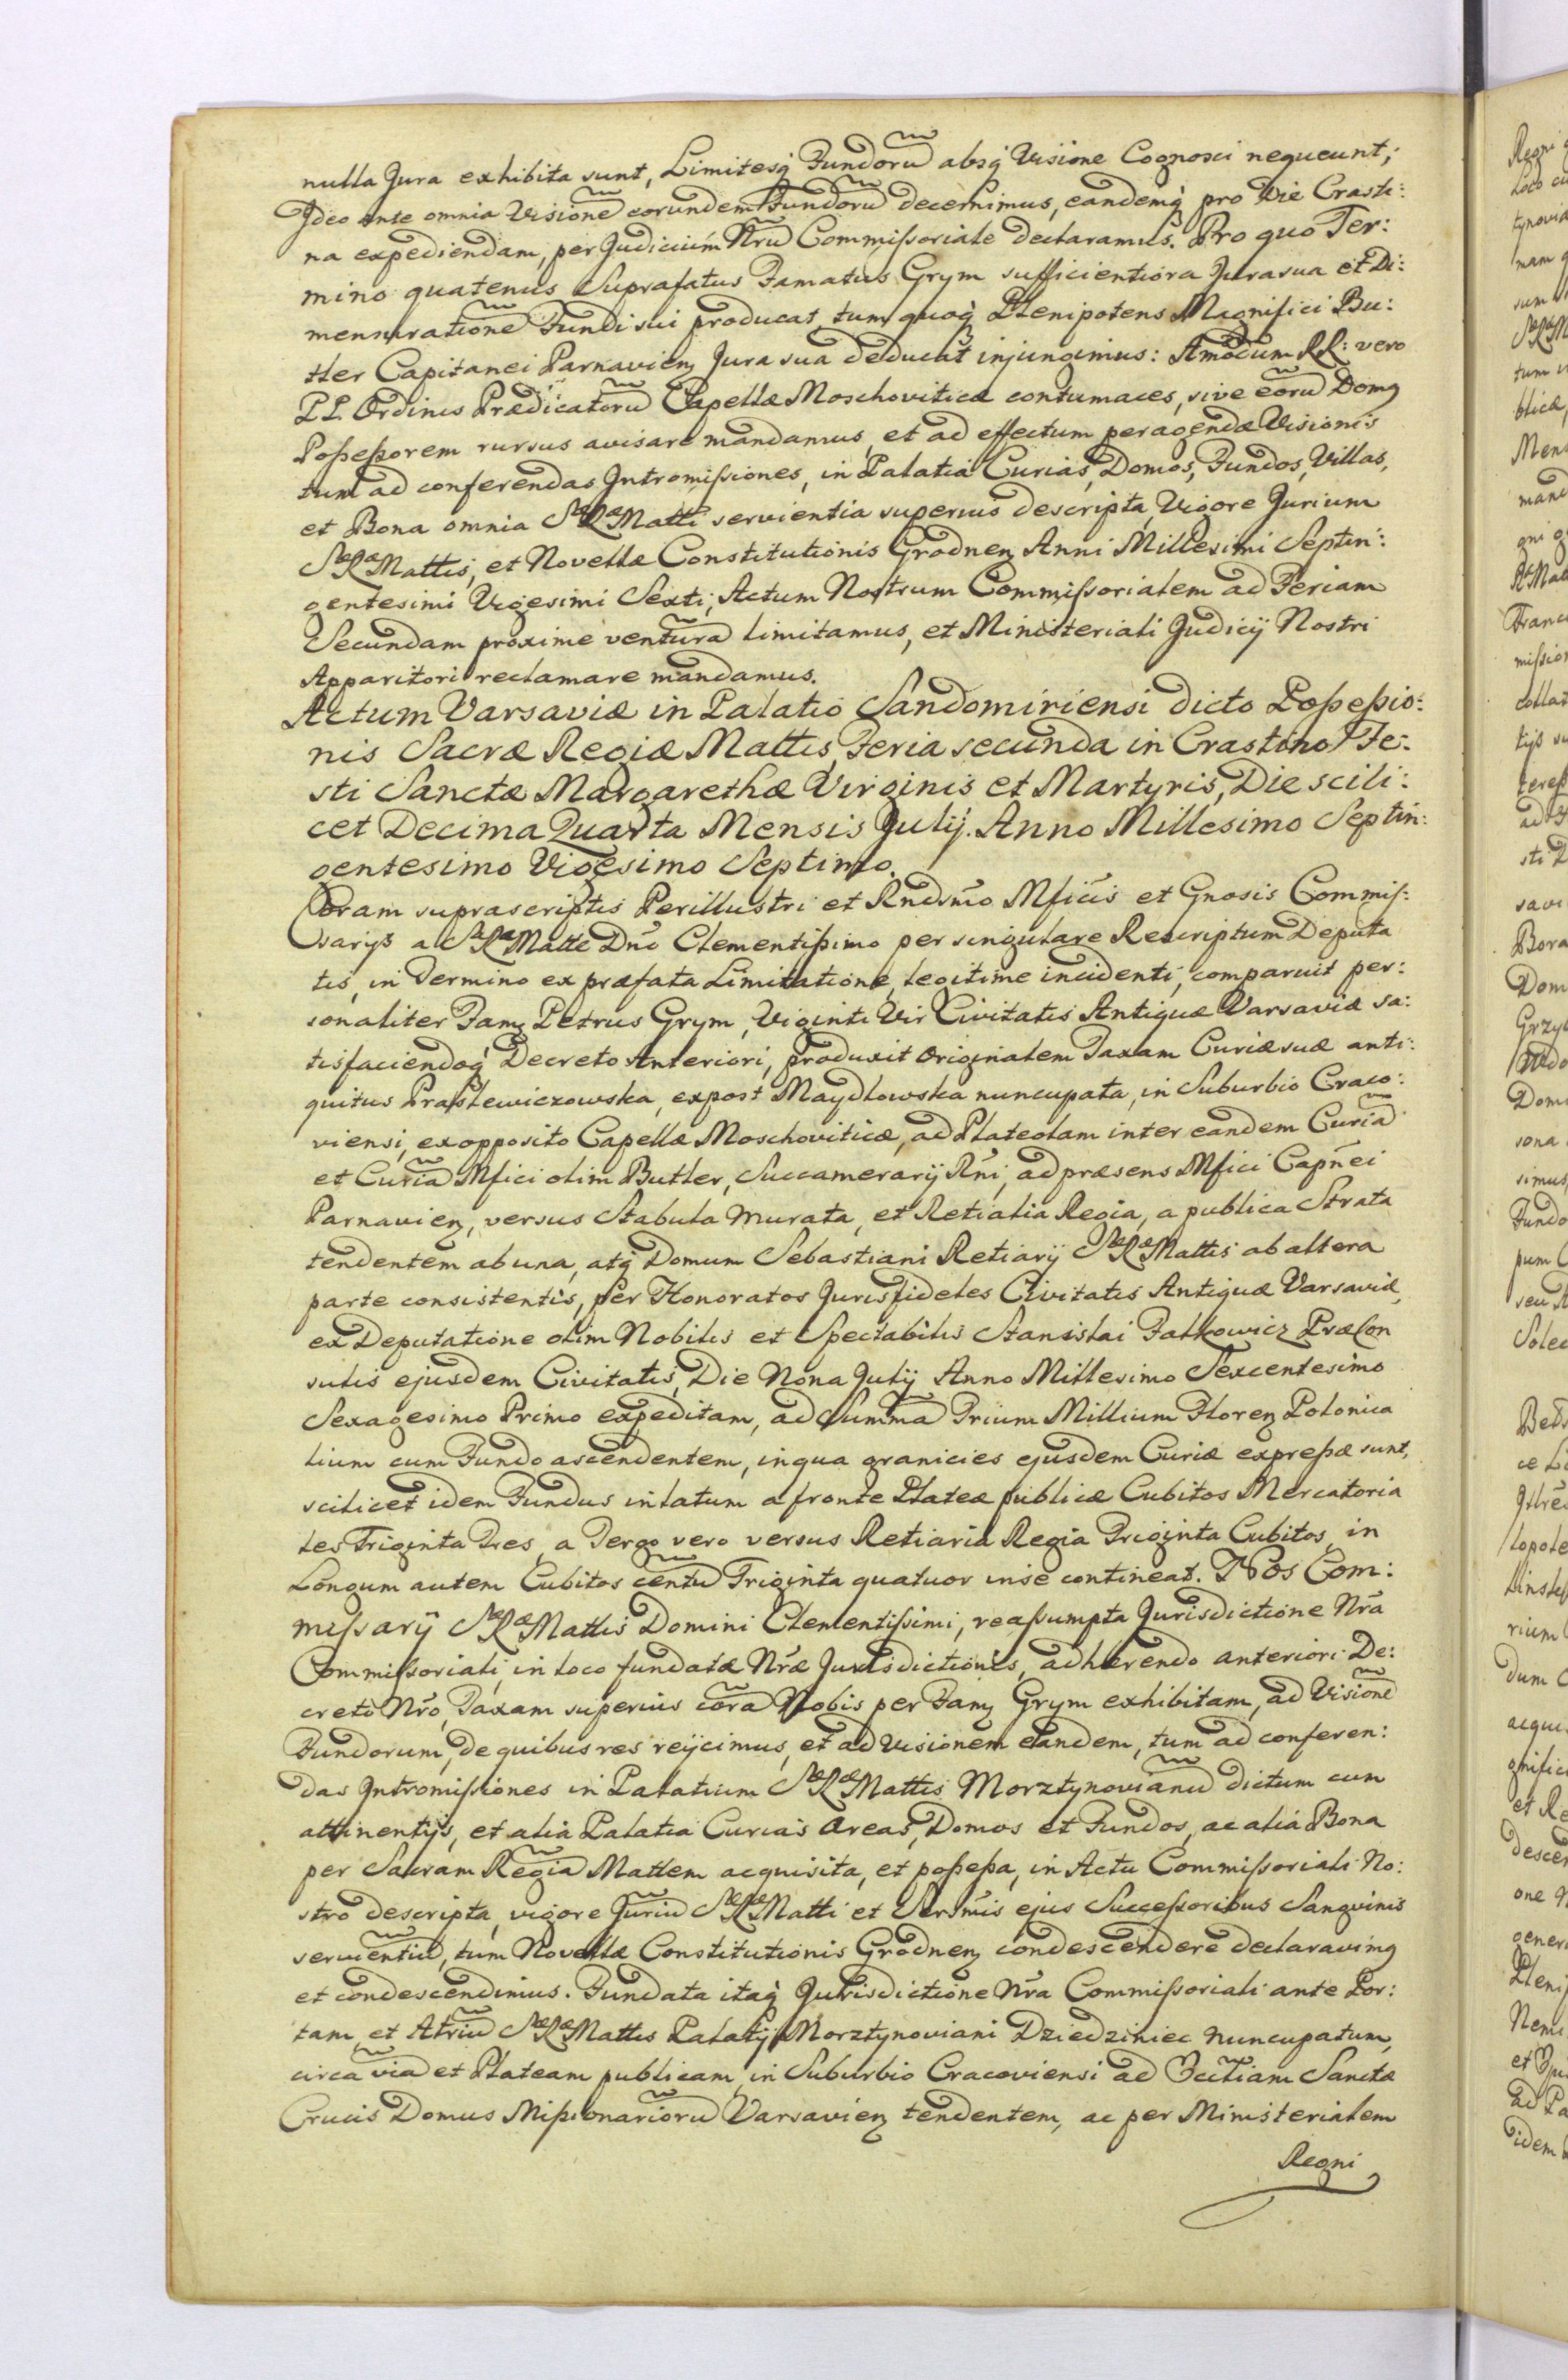 nulla Jura exhibita sunt, Limitesq́ Fundorũ absq́ Visione Cognosci nequeunt;
Ideo ante omnia Visionẽ eorundem Fundorũ decernimus, eandemq́ pro Die Crasti:
na expediendam, per Judicium Nrũ Commissoriale declaramus. Pro quo Ter:
mino quatenus Suprafatus Famatus Grym sufficientiora Jura sua et Di:
mensurationẽ Fundi sui producat, tum quoq́ Plenipotens Magnifici Bu:
tler Capitanei Parnavien̄ Jura sua deducat injungimus: Amodum RR: vero
PP. Ordinis Prædicatorũ Capellæ Moschoviticæ contumaces, sive eorũ Domq
Possessorem rursus avisare mandamus, et ad effectum peragendæ Visionis
tum ad conferendas Intromissiones, in Palatia Curias, Domos, Fundos, Villas,
et Bona omnia SæRæMatti servientia superius descripta, Vigore Jurium
SæRæMattis, et Novellæ Constitutionis Grodnen̄ Anni Millesimi Septin:
gentesimi Vigesimi Sexti, Actum Nostrum Commissorialem ad Feriam
Secundam proxime venturã limitamus, et Ministeriali Judicij Nostri
Apparitori reclamare mandamus.
Actum Varsaviæ in Palatio Sandomiriensi dicto Possessio:
nis Sacræ Regiæ Mattis, Feria secunda in Crastino Fe:
sti Sanctæ Margarethæ Virginis et Martyris, Die scili:
cet Decima Quarta Mensis Julij. Anno Millesimo Septin:
gentesimo Vigesimo Septimo.
Coram suprascriptis Perillustri et Rndsm̃o Mficis et Gnosis Commis:
sarijs a SaRaMatte Dño Clementissimo per singulare Rescriptum Deputa
tis, in Termino ex præfata Limitatione, legitime incidenti, comparuit per:
sonaliter Famq Petrus Grym, Viginti Vir Civitatis Antiquæ Varsaviæ sa:
tisfaciendoq́ Decreto Anteriori, produxit Originalem Taxam Curiæ suæ anti:
quitus Prasłewiczowska, expost Maydlowska nuncupata, in Suburbio Craco:
viensi, ex opposito Capellæ Moschoviticæ, ad Plateolam inter eandem Curiã
et Curiã Mfici olim Butler, Succamerarij Rñi, ad præsens Mfici Capñei
Parnavien̄, versus Stabula murata, et Retialia Regia, a publica Strata
tendentem ab una, atq́ Domum Sebastiani Retiarij SæRæMattis ab altera
parte consistentis, per Honoratos Jurisfideles Civitatis Antiquæ Varsaviæ,
ex Deputatione olim Nobilis et Spectabilis Stanislai Falkowicz Præcon
sulis ejusdem Civitatis, Die Nona Julij Anno Millesimo Sexcentesimo
Sexagesimo Primo expeditam, ad Summã Trium Millium Floren̄ Polonica
lium cum Fundo ascendentem, in qua granicies ejusdem Curiæ expressæ sunt,
scilicet idem Fundus in latum a fronte Plateæ publicæ Cubitos Mercatoria
les Triginta Tres, a Tergo vero versus Retiaria Regia Triginta Cubitos, in
Longum autem Cubitos centũ Triginta quatuor in se contineat. Nos Com:
missarij SæRæMattis Domini Clementissimi, reassumpta Jurisdictione Nrã
Commissoriali, in loco fundatæ Nræ Jurisdictionis, adhærendo anteriori De:
creto Nrõ, Taxam superius corã Nobis per Famq Grym exhibitam, ad Visionẽ
Fundorum, de quibus res reijcimus, et ad visionem eandem, tum ad conferen:
das Intromissiones in Palatium SæRæMattis Morztynovianũ dictum cum
attinentijs, et alia Palatia Curias Areas, Domos et Fundos, ac alia Bona
per Sacram Regiã Mattem acquisita, et possessa, in Actu Commissoriali No:
stro descripta, vigore Juriũ SæRæMatti et Sersmis ejus Successoribus Sangvinis
servientiũ, tum Novellæ Constitutionis Grodnen̄ condescendere declaravimq
et condescendimus. Fundata itaq́ Jurisdictione Nrã Commissoriali ante Por:
tam et Atriũ SæRæMattis Palatij Morztynoviani Dziedziniec nuncupatum,
circa viã et Plateam publicam in Suburbio Cracoviensi ad Ecctiam Sanctæ
Crucis Domus Missionariorũ Varsavien̄ tendentem, ac per Ministerialem
Regni